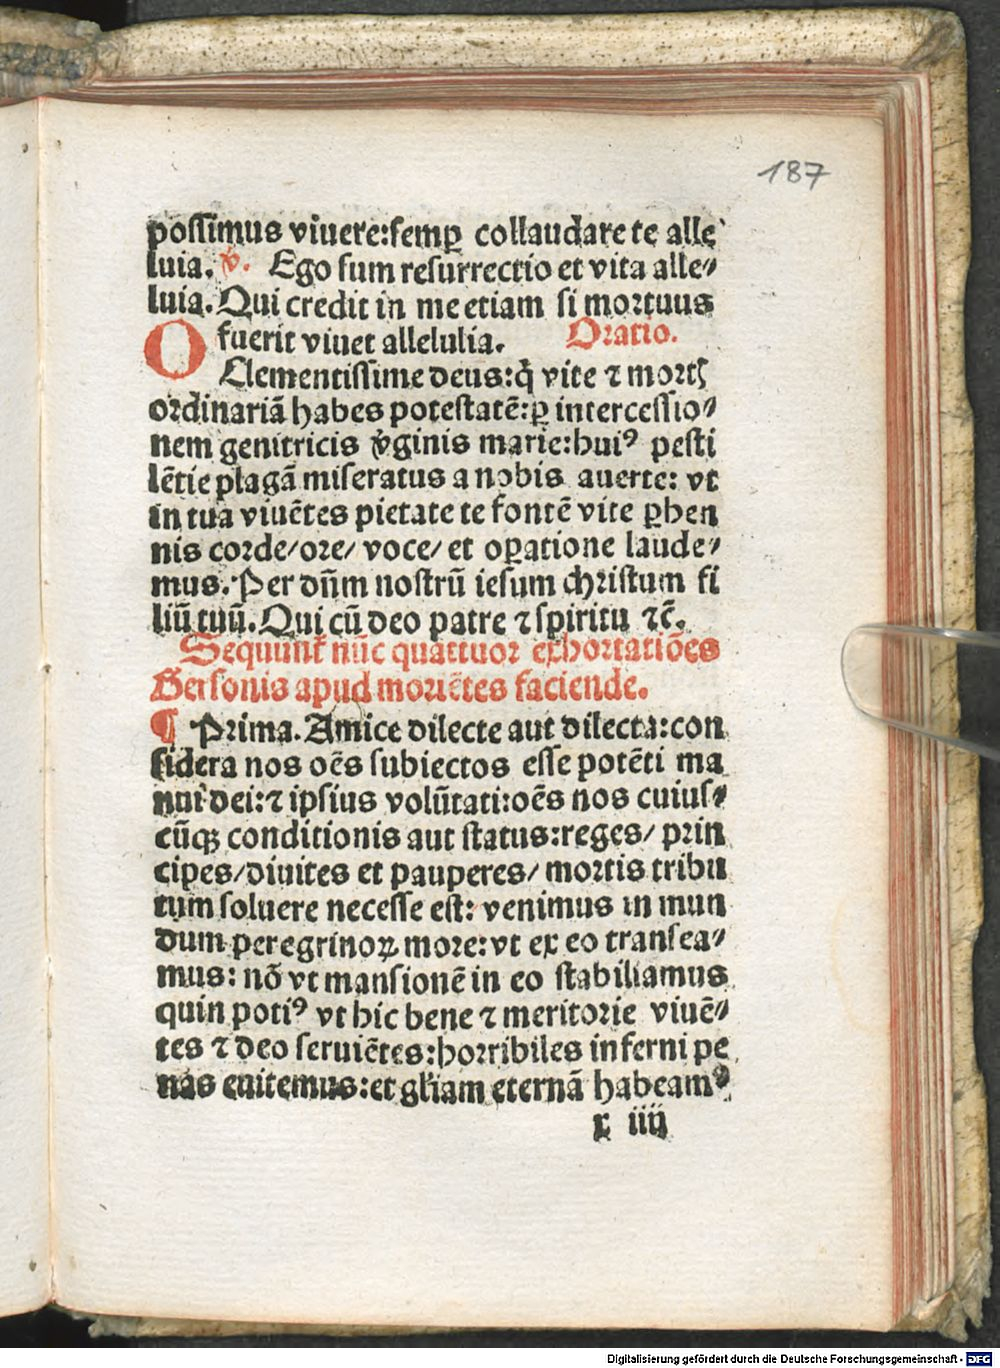 187
possimus viuere:semꝑ collaudare te alle
luia. ℣. Ego sum resurrectio et vita alle⸗
luia. Qui credit in me etiam si mortuus
fuerit viuet allelulia. Oratio.
O Clementissime deus:q̇ vite ⁊ mortꝭ
ordinariā habes potestatē:ꝑ intercessio⸗
nem genitricis v̇ginis marie:huiꝰ pesti
lētie plagā miseratus a nobis auerte: vt
in tua viuētes pietate te fontē vite ꝑhen
nis corde/ore/ voce/ et oꝑatione laude⸗
mus. Per dn̄m nostrū iesum christum fi
liū tuū. Qui cū deo patre ⁊ spiritu ⁊c̄.
Sequunt̉ nūc quattuor exhortatiōes
Gersonis apud moriētes faciende.
¶ Prima. Amice dilecte aut dilecta:con
sidera nos oēs subiectos esse potēti ma
nui dei:⁊ ipsius volūtati:oēs nos cuius⸗
cūqꝫ conditionis aut status:reges/ prin
cipes/diuites et pauperes/ mortis tribu
tum soluere necesse est: venimus in mun
dum peregrinoꝝ more:vt ex eo transea⸗
mus: nō vt mansionē in eo stabiliamus
quin potiꝰ vt hic bene ⁊ meritorie viuē⸗
tes ⁊ deo seruiētes:horribiles inferni pe
nas euitemus:et gl̄iam eternā habeamꝰ.
x iiij
Digitalisierung gefördert durch die Deutsche Forschungsgemeinschaft - DFG